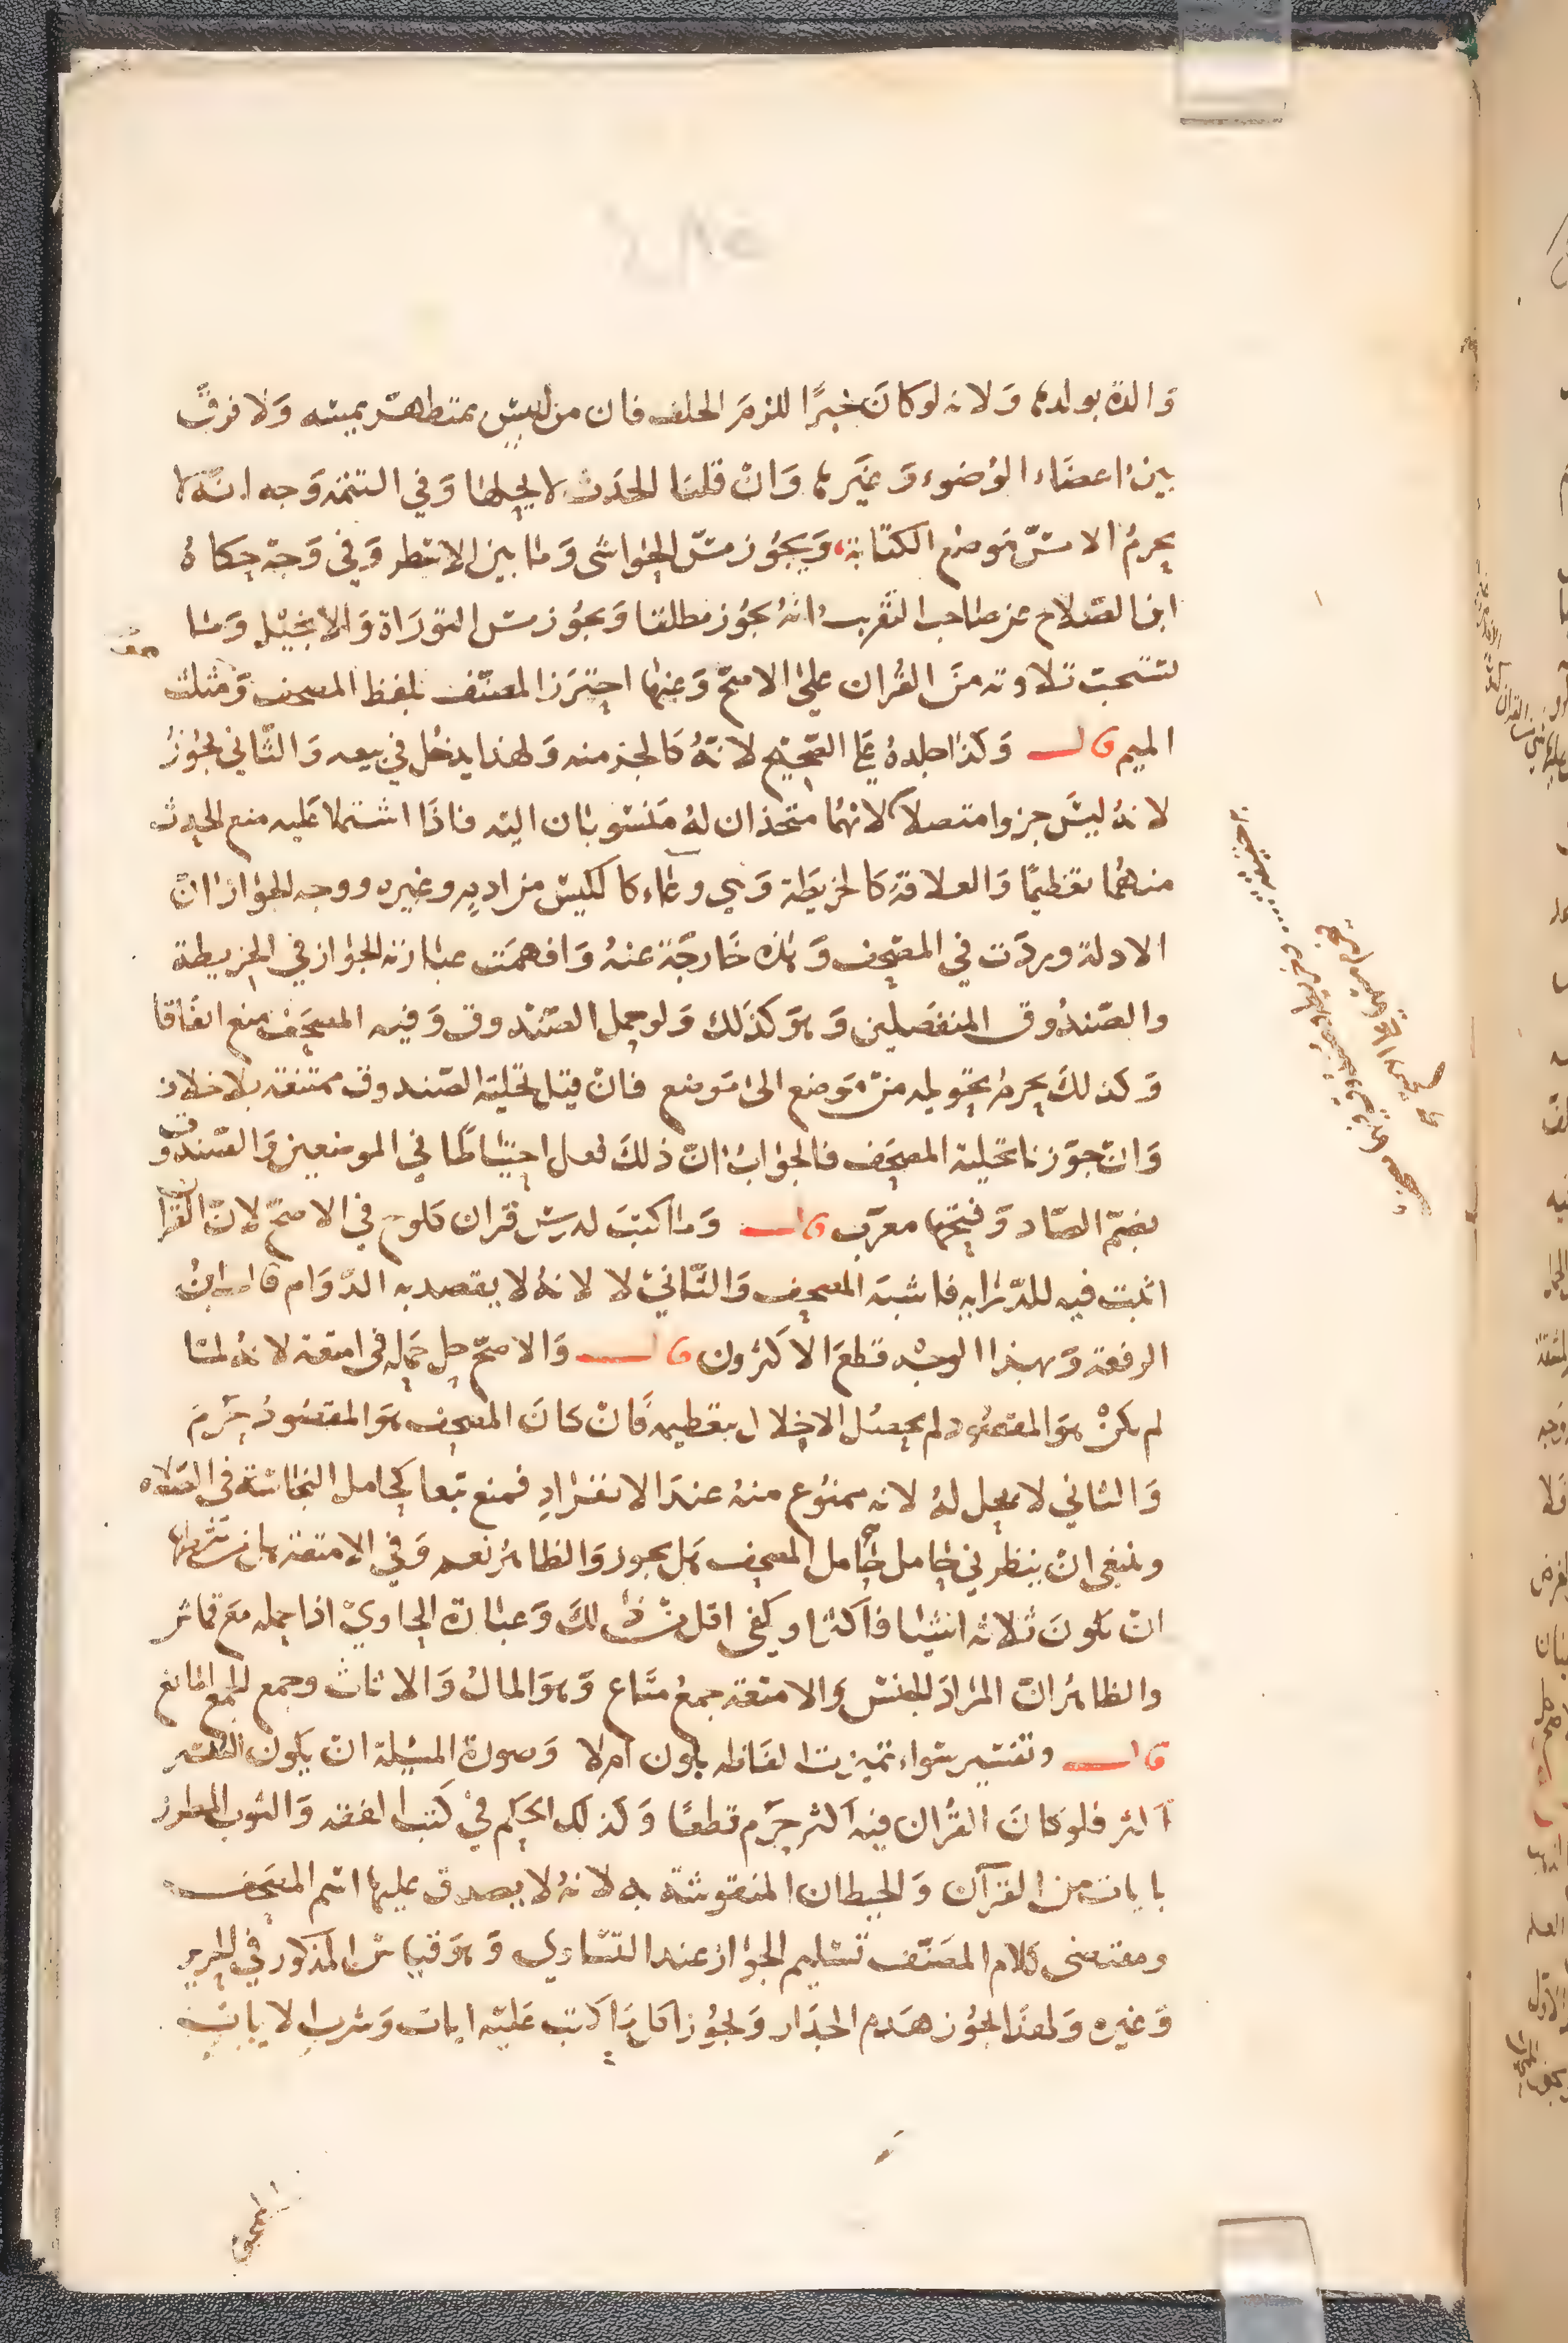 والدة بولدها ولانه لو كان خبرا للزم الحلف فان من ليس بمتطهر يمسه ولا فرق
بين اعضاء الوضوء وغيرها وان قلنا الحدث لا يحلها وفي التتمة وجه انه لا
يحرم الا مس موضع الكتابة ويجوز مس الحواشي وما بين الاسطر وفي وجه حكاه
ابن الصلاح عن صاحب التقريب انه يجوز مطلقا ويجوز مس التوراة والانجيل وما
نسخت تلاوته من القران على الاصح وعنها احترز المصنف بلفظ المصحف ومثلث
الميم قال وكذا جلده على الصحيح لانه كالجز منه ولهذا يدخل في بيعه والثاني يجوز
لانه ليس جزوا متصلا لانهما متخذان له منسوبان اليه فاذا اشتملا عليه منع الحدث
منهما تعظيما والعلاقة كالخريطة وهي وعاء كالكيس من اديم وغيره ووجه الجواز ان
الادلة وردت في المصحف وهذه خارجة عنه وافهمت عبارته الجواز في الخريطة
والصندوق المنفصلين وهو كذلك ولو حمل الصندوق وفيه المصحف منع اتفاقا
وكذلك يحرم تحويله من موضع الى موضع فان قيل تحلية الصندوق ممتنعة بلا خلاف
وان جوزنا تحلية المصحف فالجواب ان ذلك فعل احتياطا في الموضعين والصندوق
بضم الصاد وفتحها معرب قال وما كتب لدرس قران كلوح في الاصح لان القران
اثبت فيه للدراية فاشبه المصحف والثاني لا لانه لا يقصد به الدوام قال ابن
الرفعة وبهذا الوجه قطع الاكثرون قال والاصح حل حمله في امتعة لانه لما
لم يكن هو المقصود لم يحصل الاخلال بتعظيمه فان كان المصحف هو المقصود حرم
والثاني لا يحل له لانه ممنوع منه عند الانفراد فمنع تبعا كحامل النجاسة في الصلاه
وينبغي ان ينظر في حامل حامل المصحف هل يجوز والظاهر نعم وفي الامتعة هل شرطها
ان تكون ثلاثة اشيا فاكثر او يكفي اقل من ذلك وعبارة الحاوي اذا حمله مع قماش
والظاهر ان المراد الجنس والامتعة جمع متاع وهو المال والاثاث وجمع الجمع اماتع
قال وتفسير سواء تميزت الفاظه بلون ام لا وصورة المسيلة ان يكون التفسير
اكثر فلو كان القران فيه اكثر حرم قطعا وكذلك الحكم في كتب الفقه والثوب المطرز
بايات من القرآن والحيطان المنقوشة به لانه لا يصدق عليها اسم المصحف
ومقتضى كلام المصنف تسليم الجواز عند التساوي وهو قياس المذكور في الحرير
وغيره ولهذا يجوز هدم الجدار ويجوز اكل ما كتب عليه ايات وشرب الايات